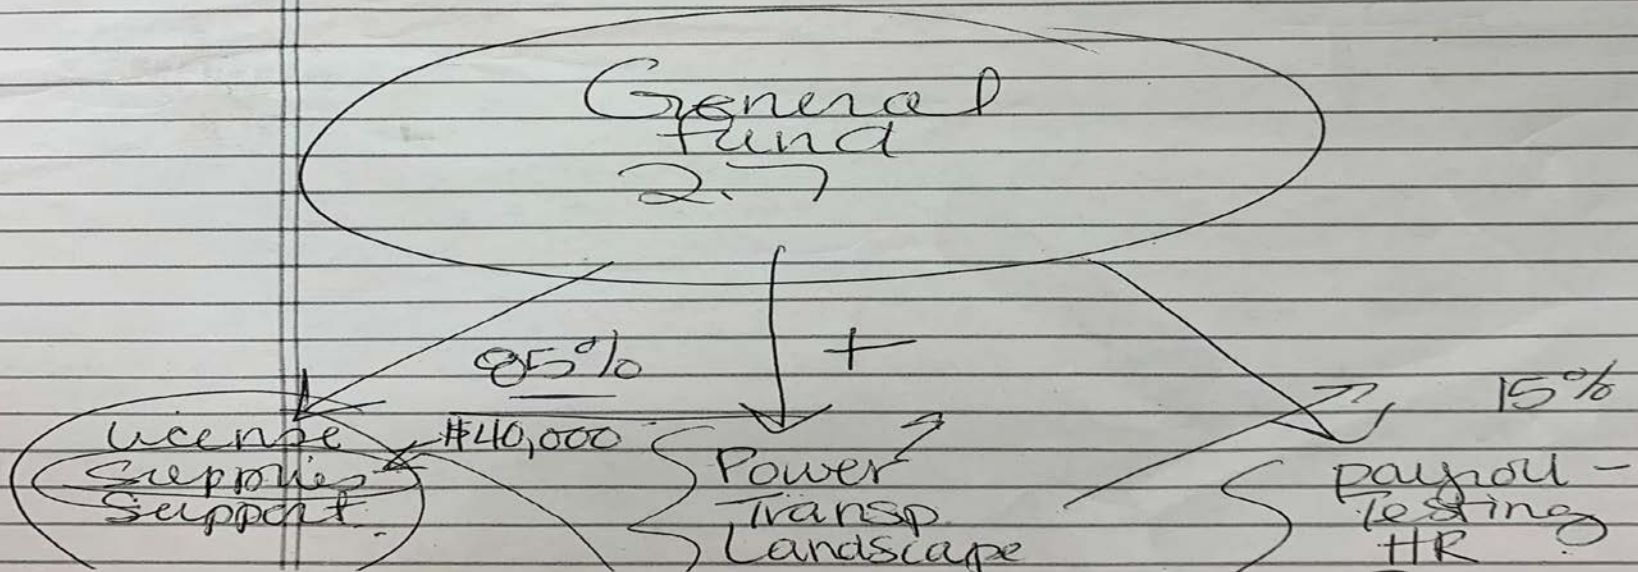 General
fund
2.7
85%
+
15%
License
Supplies
Support
$40,000
Power
Transp
Landscape
payroll -
Testing
HR